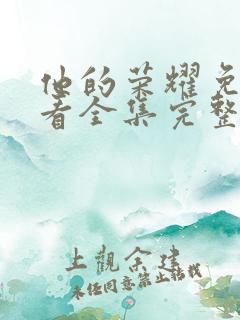 他的荣耀免
看全集完整
上觀余建
未经同意禁止转载